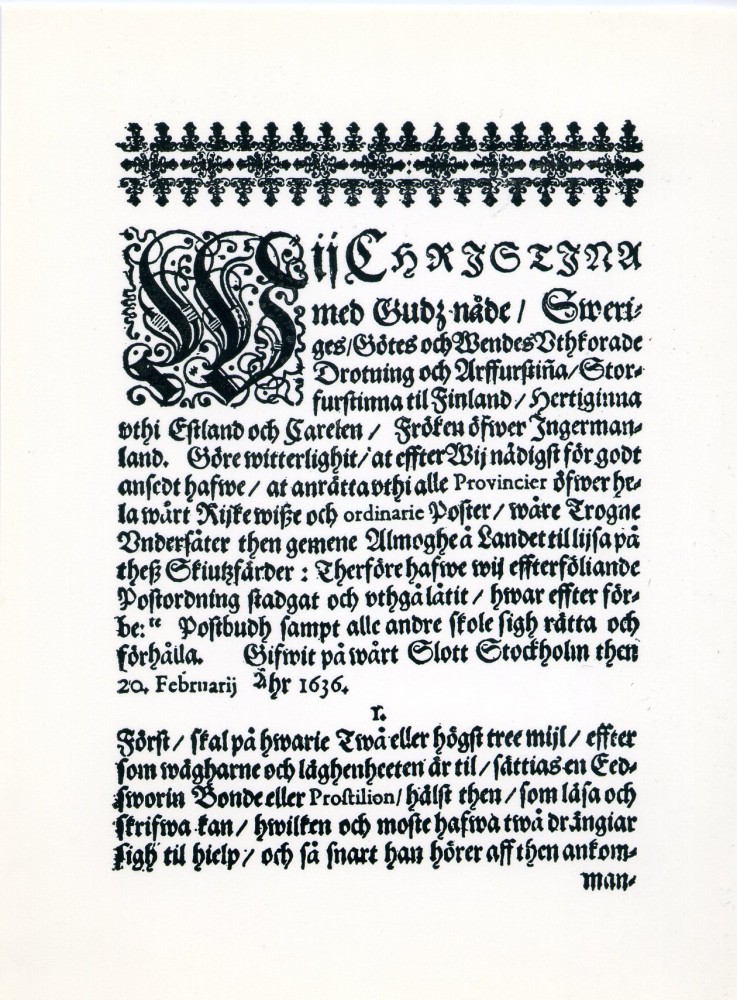 Wij CHRISTINA
med Gudz nåde / Sweri-
ges/Götes och Wendes Vthkorade
Drotning och Arffurstiña/Stor-
furstinna til Finland / Hertiginna
vthi Estland och Carelen / Fröken öfwer Ingerman-
land. Göre witterlighit/at effter Wij nådigst för godt
ansedt hafwe / at anrätta vthi alle Provincier öfwer he-
la wårt Rijke wiße och ordinarie Poster / wåre Trogne
Vndersåter then gemene Almoghe å Landet til lijsa på
theß Skiutzfärder : Therföre hafwe wij effterföliande
Postordning stadgat och vthgå låtit / hwar effter för-
be:te Postbudh sampt alle andre skole sigh rätta och
förhålla. Gifwit på wårt Slott Stockholm then
20. Februarij Åhr 1636.
1.
Först / skal på hwarie Twå eller högst tree mijl / effter
som wägharne och läghenheeten är til / sättias en Eed-
sworin Bonde eller Prostilion/ hälst then / som läsa och
skrifwa kan / hwilken och moste hafwa twå drängiar
sigh til hielp / och så snart han hörer aff then ankom-
man-